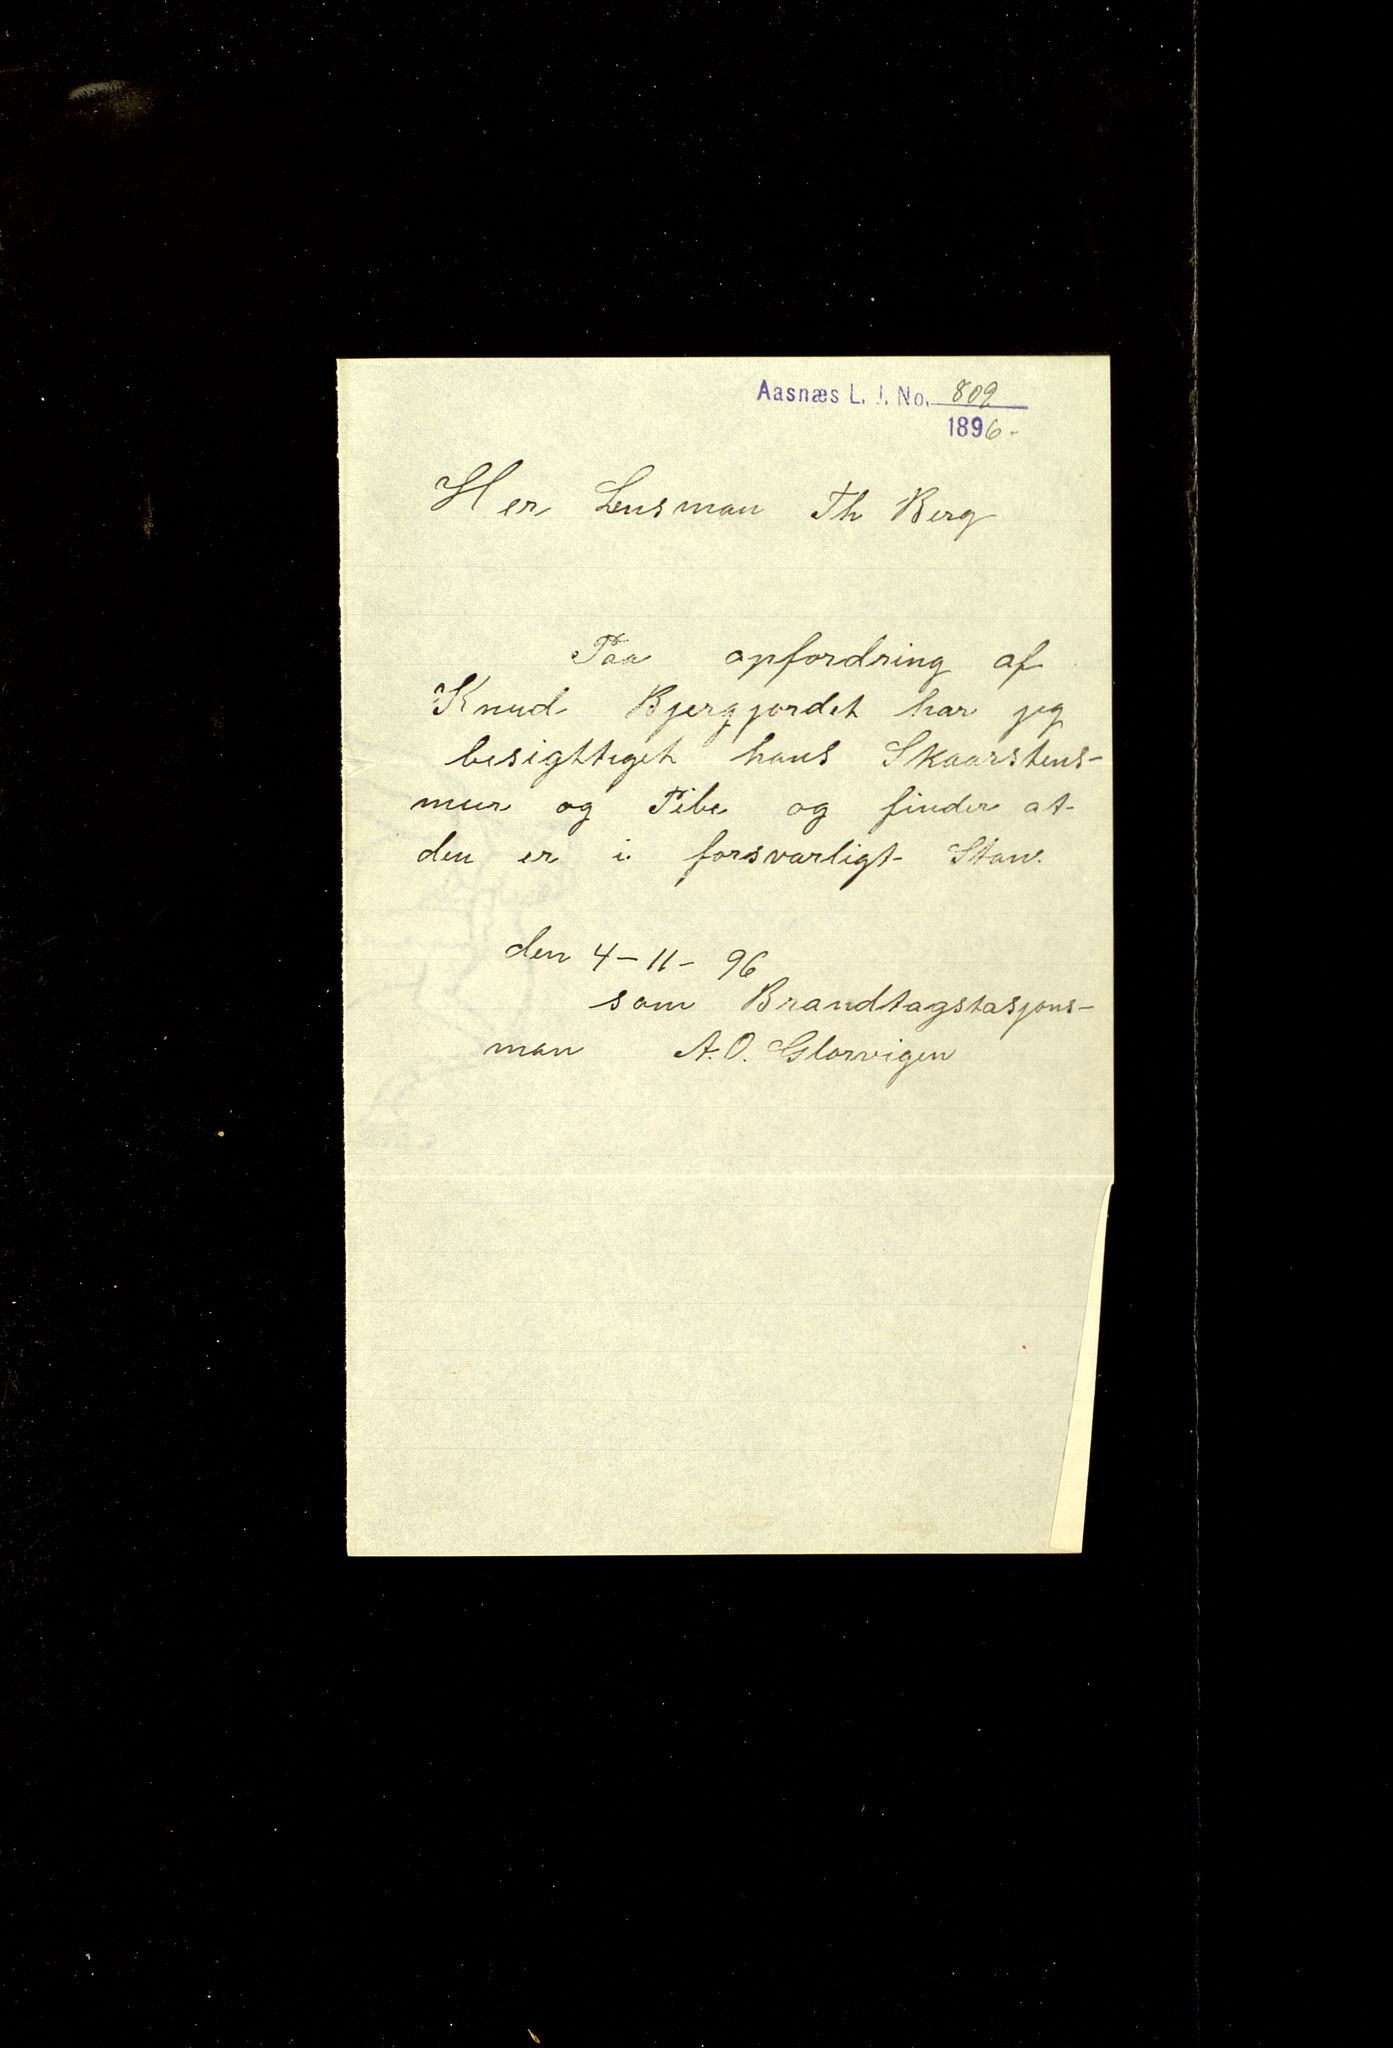 Aasnæs L. J. No. 809
1896-
Her Lensman Th Berg
Paa opfordring af
Knud Bjergjordet har jeg
besigttiget hans Skaarstens-
mur og Pibe og finder at
den er i forsvarligt Stan.
den 4-11-96
som Brandtagstasjons-
man A.O. Glorvigen